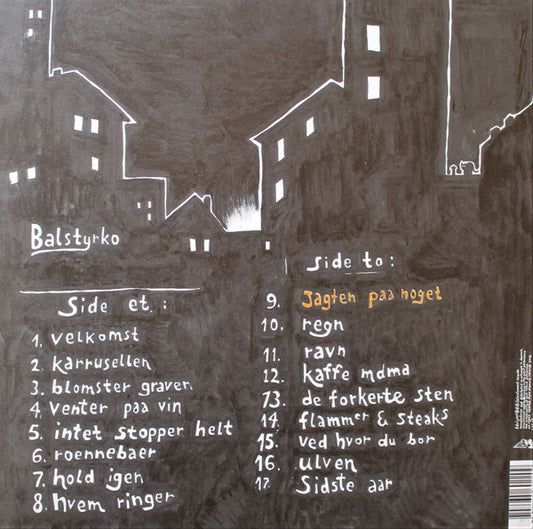 Balstyrko
Side et:
1. velkomst
2. karrusellen
3. blomster graver
4. venter paa vin
5. intet stopper helt
6. roennebaer
7. hold igen
8. hvem ringer
Side to:
9. Jagten paa noget
10. regn
11. ravn
12. kaffe mama
13. de forkerte sten
14. flammer & steaks
15. ved hvor du bor
16. ulven
17. Sidste aar